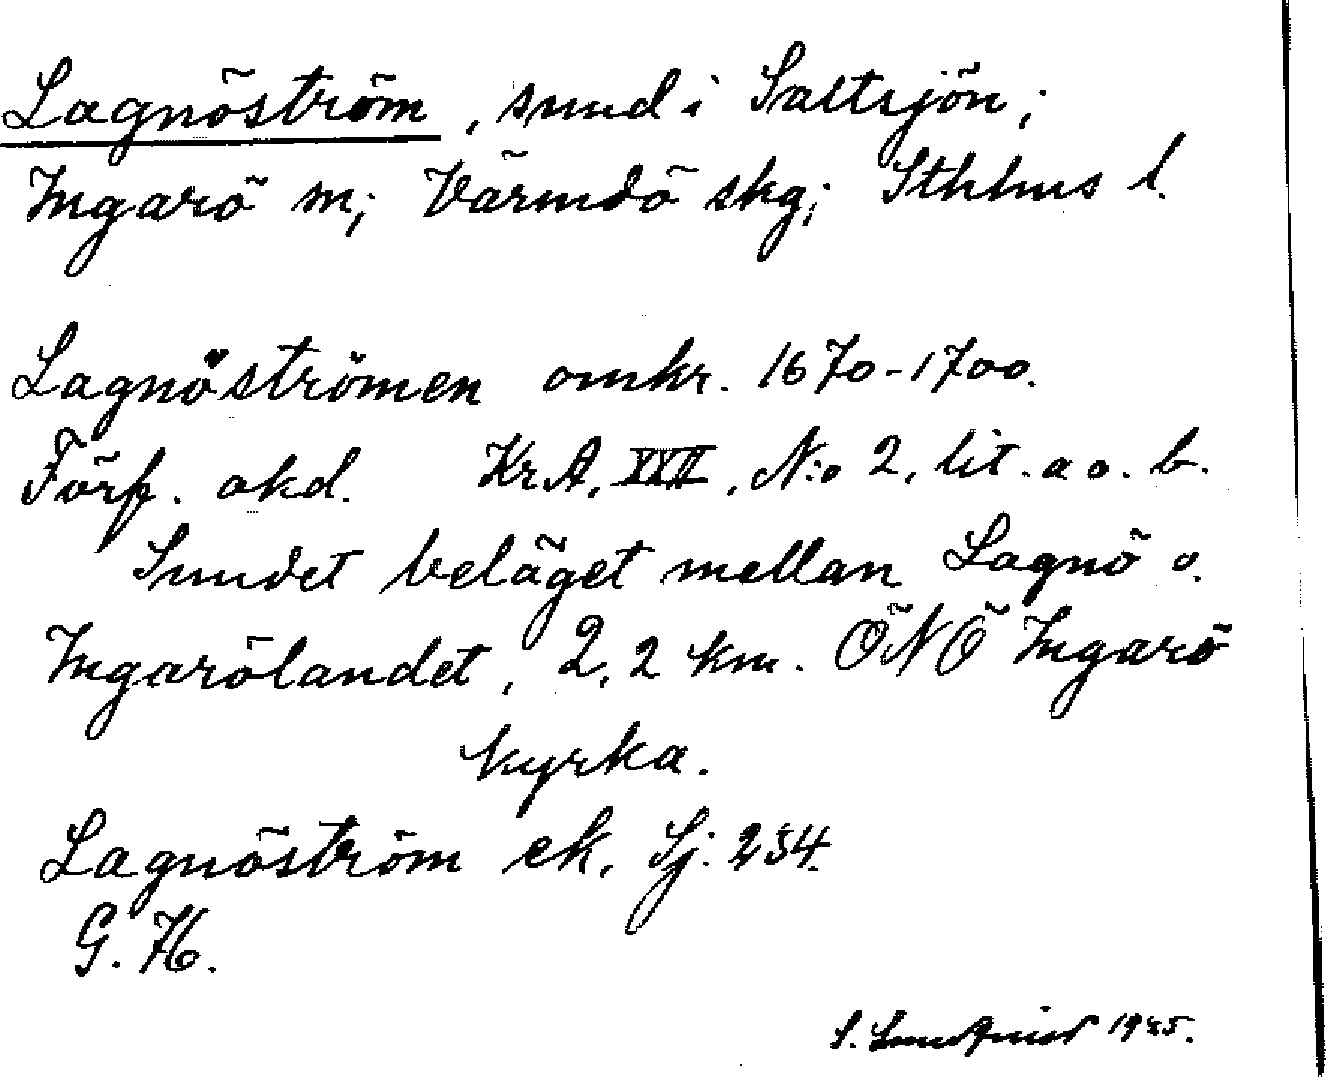 Lagnöström, sund i Saltsjön;
Ingarö sn; Värmdö skg; Sthlms l.
Lagnöströmen omkr. 1670-1700.
Förf. okd. Kr A, XIII, N:o 2, lit. a o. b.
Sundet beläget mellan Lagnö o.
Ingarölandet, 2,2 km. ÖNÖ Ingarö
kyrka.
Lagnöström ek. Sj. 234.
G. H.
S. 1925.